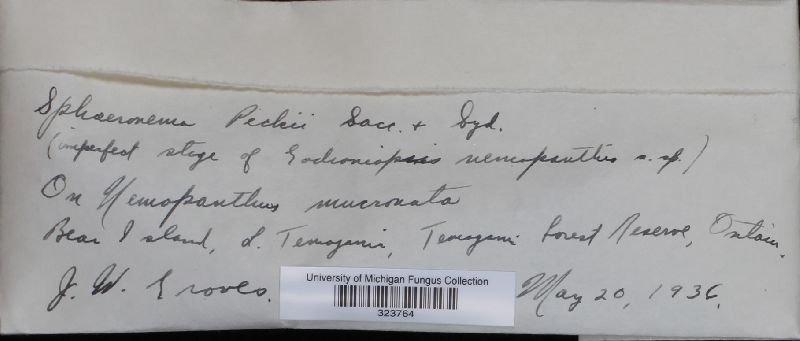 Sphaeronema Peckii Sacc. + Syd.
(imperfect stage of Godroniopsis nemopanthis n. sp.)
On Nemopanthus mucronata
Bear Island, L. Temagami, Temagami Forest Reserve, Ontario.
J. W. Groves. May 20, 1936.
University of Michigan Fungus Collection
323764